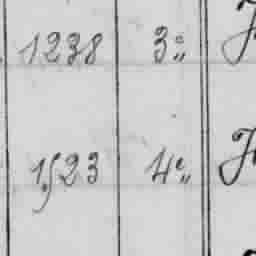 1238 3e„
1523 4e„